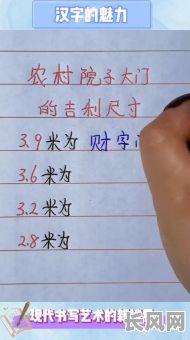 汉字的魅力
农村院子大门
的吉利尺寸
3.9米为 财字
3.6米为
3.2米为
2.8米为
现代书写艺术的
长风网